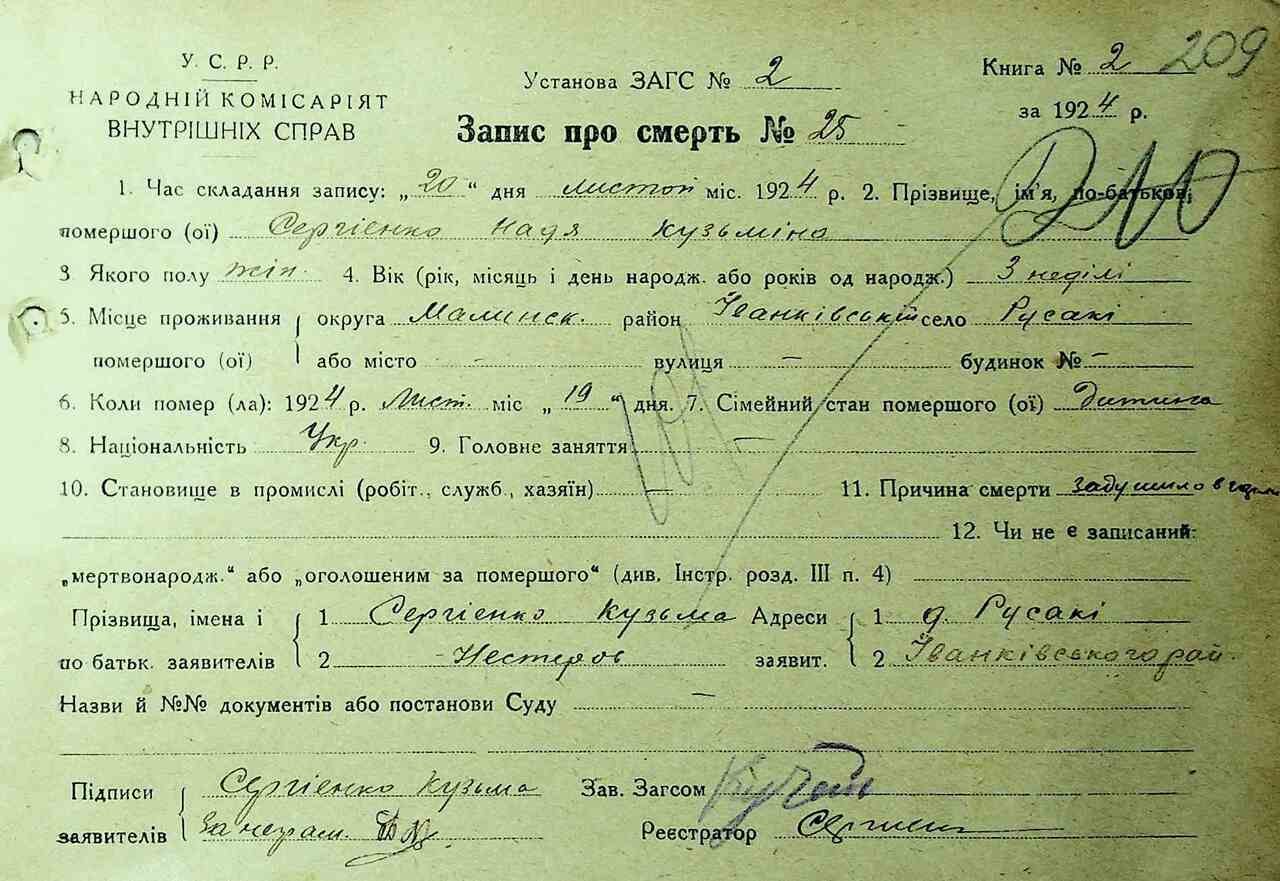 У. С. Р. Р.
НАРОДНІЙ КОМІСАРІЯТ
ВНУТРІШНІХ СПРАВ
Установа ЗАГС № 2
Книга № 2 209
за 1924 р.
Запис про смерть № 25
1. Час складання запису: „20“ дня листоп міс. 1924 р. 2. Прізвище, ім'я, по-батькові,
помершого (ої) Сергієнко Надя Кузьміна
3 Якого полу жін. 4. Вік (рік, місяць і день народж. або років од народж.) 3 неділі
5. Місце проживання округа Малинск. район Іванківський село Русакі
помершого (ої) або місто - вулиця - будинок № -
6. Коли помер (ла): 1924 р. Лист. міс „19“ дня. 7. Сімейний стан помершого (ої) Дитина
8. Національність Укр. 9. Головне заняття -
10. Становище в промислі (робіт., служб., хазяїн) - 11. Причина смерти задушило в
12. Чи не є записаний:
„мертвонародж.“ або „оголошеним за помершого“ (див. Інстр. розд. III п. 4)
Прізвища, імена і 1 Сергієнко Кузьма Адреси 1 д. Русакі
по батьк. заявителів 2 Нестеров заявит. 2 Іванківського рай.
Назви й №№ документів або постанови Суду -
Підписи Сергієнко Кузьма Зав. Загсом
заявителів за неграм. Реєстратор